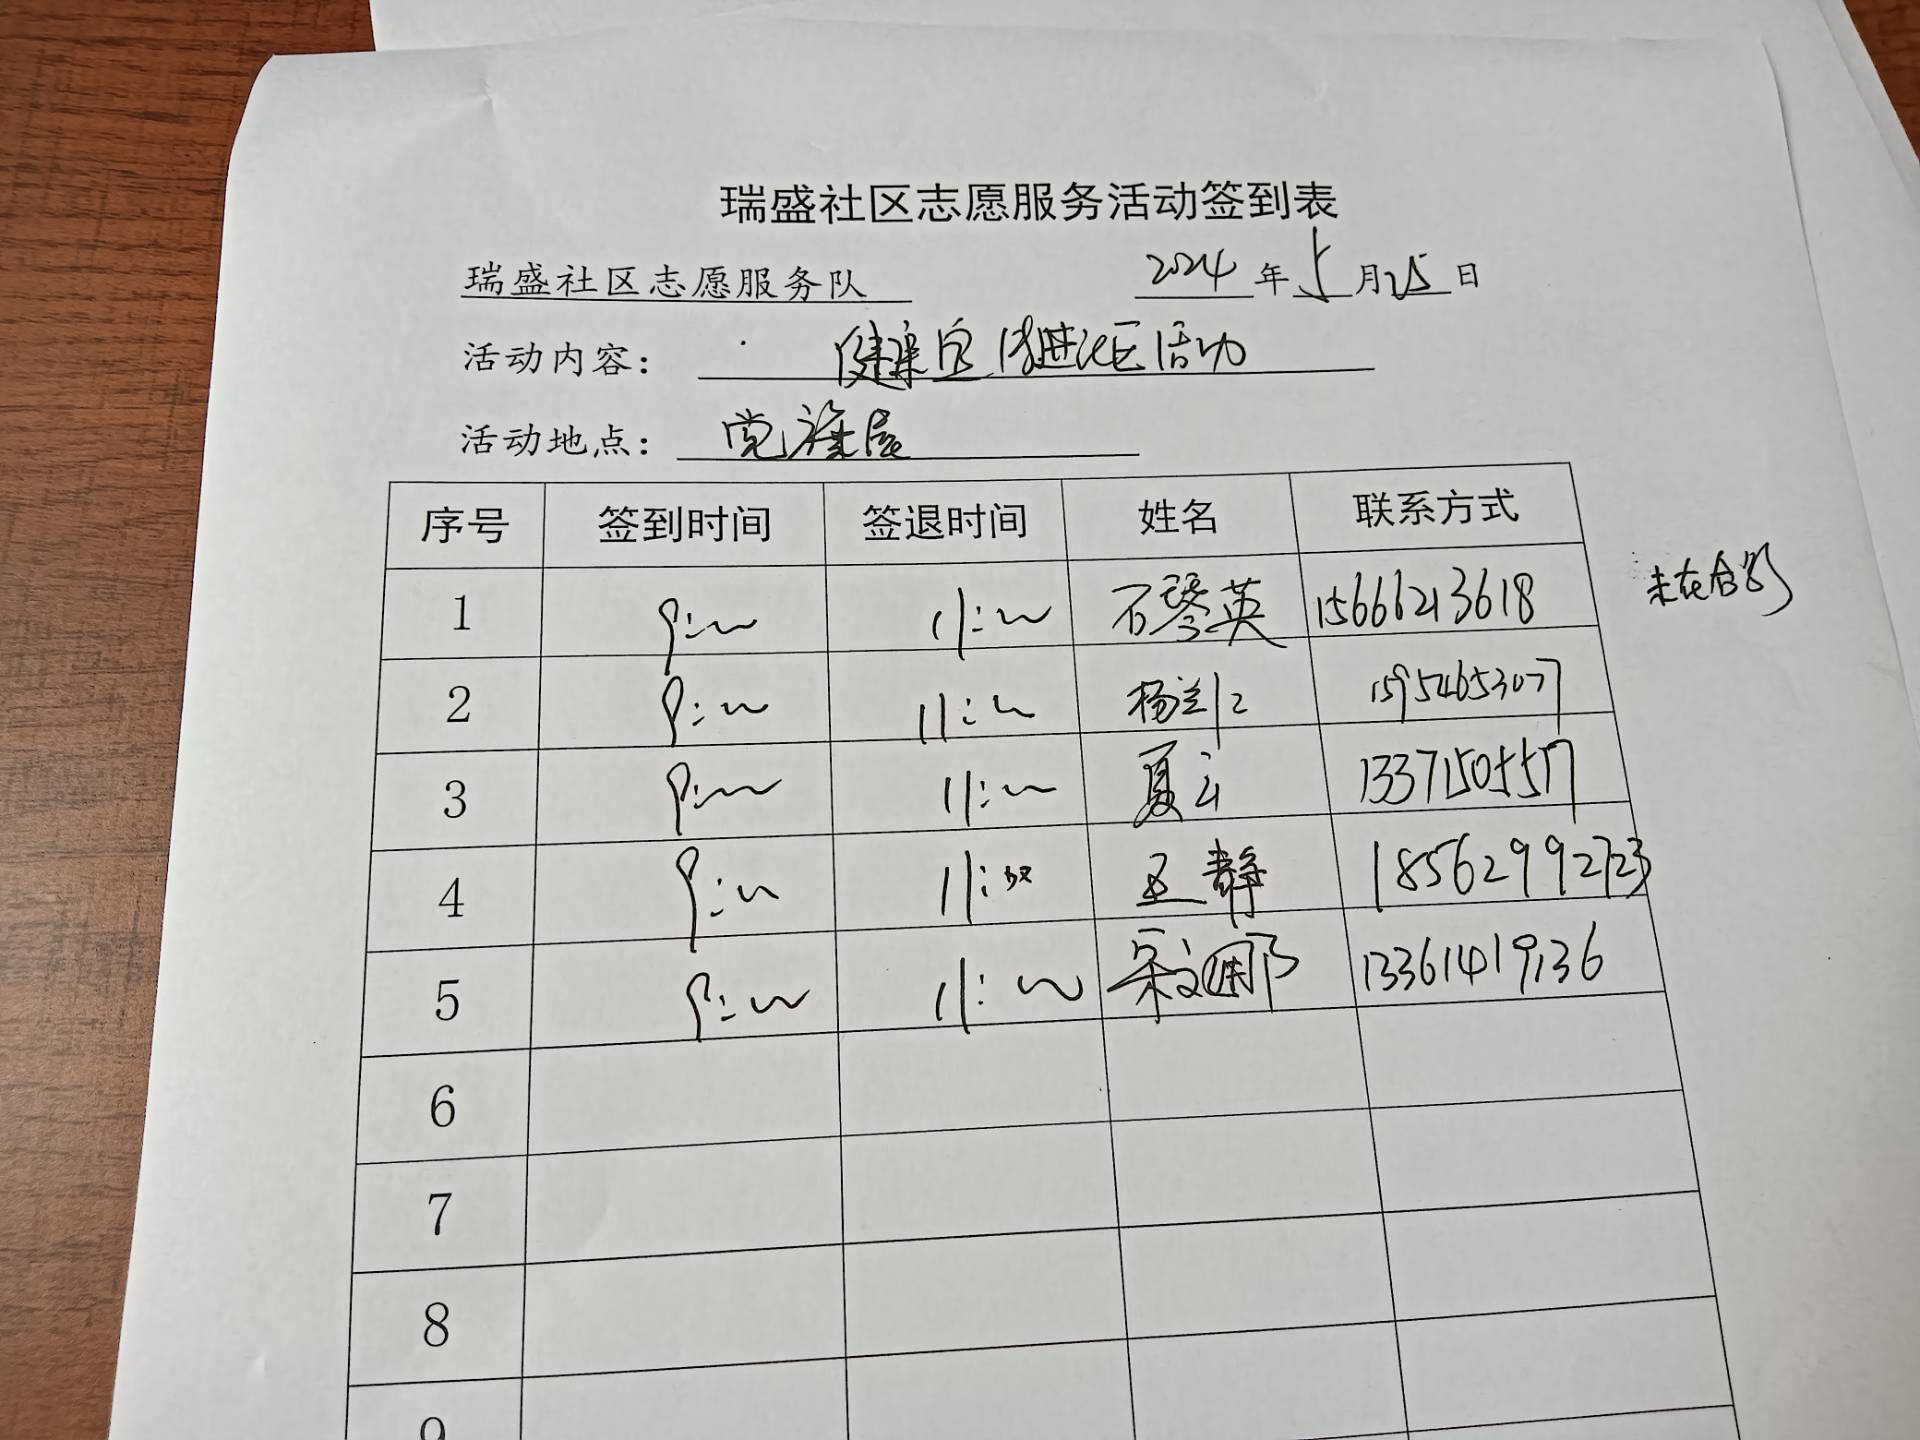 瑞盛社区志愿服务活动签到表
瑞盛社区志愿服务队 2024年5月25日
活动内容： 健康宣传进社区活动
活动地点： 党群居
序号 签到时间 签退时间 姓名 联系方式
1 9:00 11:00 石琴英 15666213618 未在合影
2 9:00 11:00 杨兰 15954653077
3 9:00 11:00 夏云 13371505517
4 9:00 11:00 王静 18562992723
5 9:00 11:00 宋文娜 13361419136
6
7
8
9